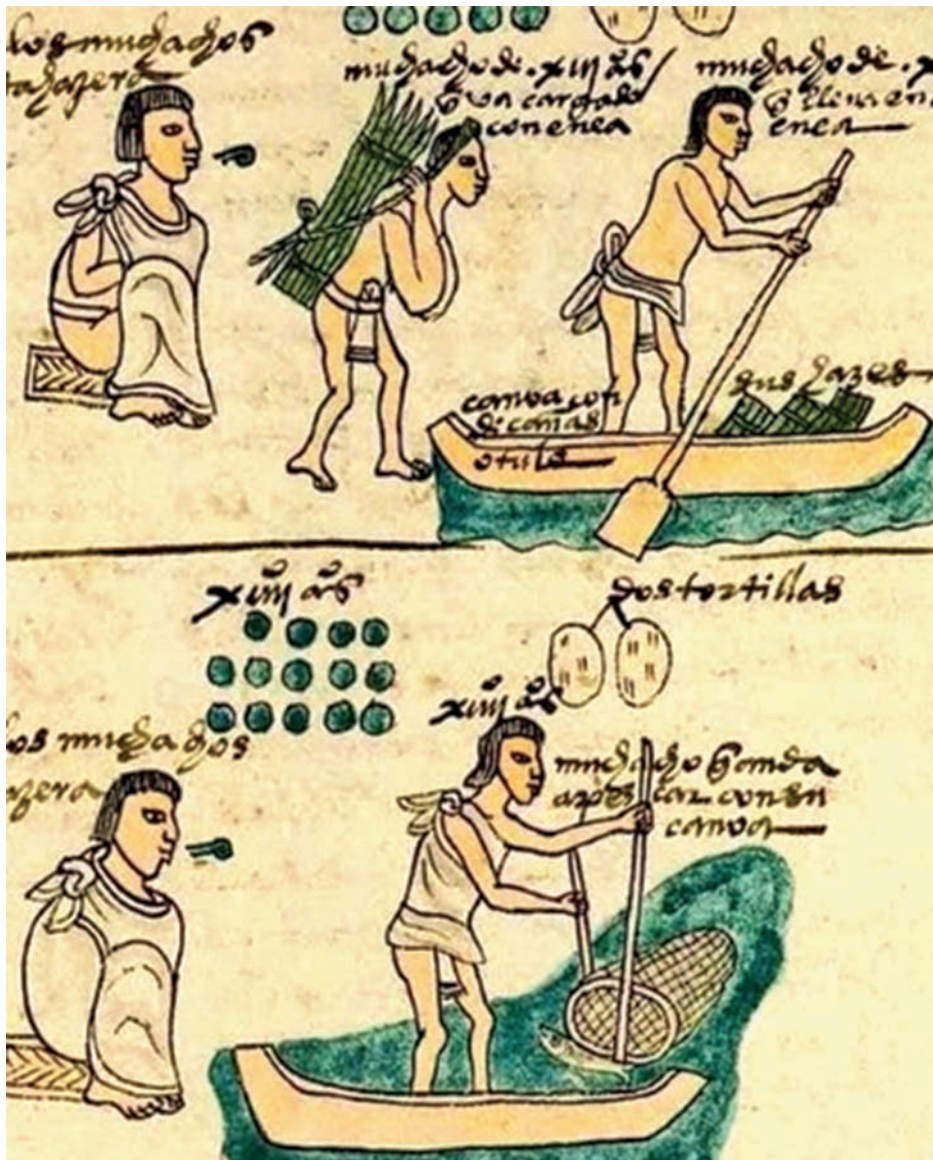 los muchachos
muchacho de . xiij años /
q̄ va cargado
con enea
muchacho de .
q̄ lleva en
enea
canoa con
de cañas
o tule
sus hazes
xiiij años
dos tortillas
xiiij años
os muchachos
muchacho q̄ anda
a pescar con su
canoa